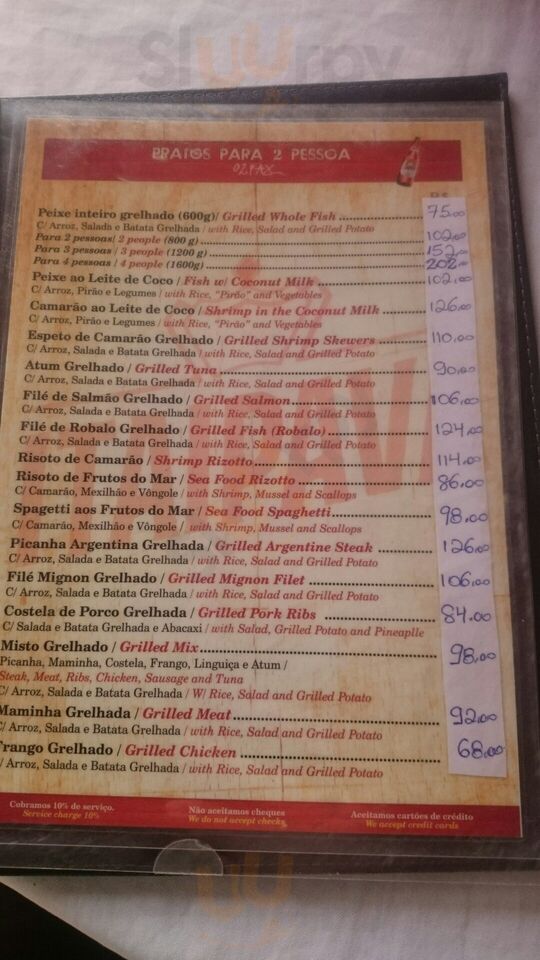 Sluurpy
PRATOS PARA 2 PESSOA
R$
Peixe inteiro grelhado (600g)/ Grilled Whole Fish 75,00
C/ Arroz, Salada e Batata Grelhada / with Rice, Salad and Grilled Potato
Para 2 pessoas/ 2 people (800 g) 102,00
Para 3 pessoas / 3 people (1200 g) 152,00
Para 4 pessoas / 4 people (1600g) 202,00
Peixe ao Leite de Coco / Fish w/ Coconut Milk 102,00
C/ Arroz, Pirão e Legumes / with Rice, "Pirão" and Vegetables
Camarão ao Leite de Coco / Shrimp in the Coconut Milk 126,00
C/ Arroz, Pirão e Legumes / with Rice, "Pirão" and Vegetables
Espeto de Camarão Grelhado / Grilled Shrimp Skewers 110,00
C/ Arroz, Salada e Batata Grelhada / with Rice, Salad and Grilled Potato
Atum Grelhado / Grilled Tuna 90,00
C/ Arroz, Salada e Batata Grelhada / with Rice, Salad and Grilled Potato
Filé de Salmão Grelhado / Grilled Salmon 106,00
C/ Arroz, Salada e Batata Grelhada / with Rice, Salad and Grilled Potato
Filé de Robalo Grelhado / Grilled Fish (Robalo) 124,00
C/ Arroz, Salada e Batata Grelhada / with Rice, Salad and Grilled Potato
Risoto de Camarão / Shrimp Rizotto 114,00
Risoto de Frutos do Mar / Sea Food Rizotto 86,00
C/ Camarão, Mexilhão e Vôngole / with Shrimp, Mussel and Scallops
Spagetti aos Frutos do Mar / Sea Food Spaghetti 98,00
C/ Camarão, Mexilhão e Vôngole / with Shrimp, Mussel and Scallops
Picanha Argentina Grelhada / Grilled Argentine Steak 126,00
C/ Arroz, Salada e Batata Grelhada / with Rice, Salad and Grilled Potato
Filé Mignon Grelhado / Grilled Mignon Filet 106,00
C/ Arroz, Salada e Batata Grelhada / with Rice, Salad and Grilled Potato
Costela de Porco Grelhada / Grilled Pork Ribs 84,00
C/ Salada e Batata Grelhada e Abacaxi / with Salad, Grilled Potato and Pineaplle
Misto Grelhado / Grilled Mix 98,00
Picanha, Maminha, Costela, Frango, Linguiça e Atum /
Steak, Meat, Ribs, Chicken, Sausage and Tuna
C/ Arroz, Salada e Batata Grelhada / W/ Rice, Salad and Grilled Potato
Maminha Grelhada / Grilled Meat 92,00
C/ Arroz, Salada e Batata Grelhada / with Rice, Salad and Grilled Potato
Frango Grelhado / Grilled Chicken 68,00
/ Arroz, Salada e Batata Grelhada / with Rice, Salad and Grilled Potato
Cobramos 10% de serviço. Não aceitamos cheques Aceitamos cartões de crédito
Service charge 10% We do not accept checks We accept credit cards